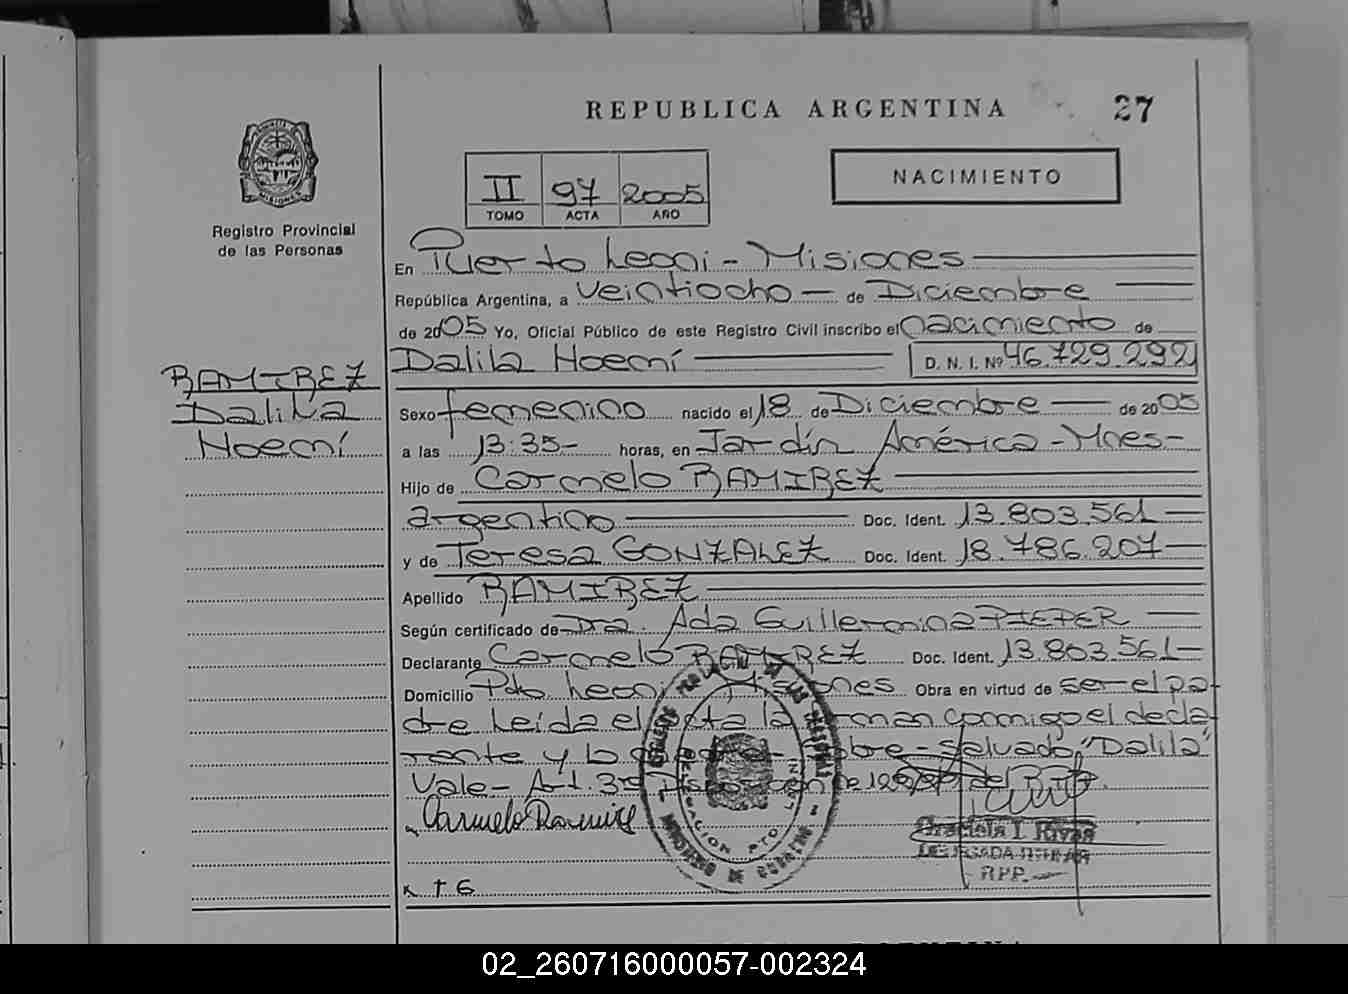 REPUBLICA ARGENTINA
27
Registro Provincial
de las Personas
II 97 2005
TOMO ACTA AÑO
NACIMIENTO
En Puerto Leoni - Misiones
República Argentina, a Veintiocho — de Diciembre
de 2005 Yo, Oficial Público de este Registro Civil inscribo el nacimiento de
Dalila Noemí D. N. I. Nº 46.729.292
RAMIREZ
Dalila
Noemí
Sexo femenino nacido el 18 de Diciembre — de 2005
a las 13:35- horas, en Jardín América - Mnes-
Hijo de Carmelo RAMIREZ
argentino Doc. Ident. 13.803.561
y de Teresa GONZALEZ Doc. Ident. 18.786.207
Apellido RAMIREZ
Según certificado de Dra. Ada Guillermina PIEPER
Declarante Carmelo RAMIREZ Doc. Ident. 13.803.561
Domicilio Pto Leoni Misiones Obra en virtud de ser el pa-
dre Leída el acta la firman conmigo el decla
rante y la - sobre-salvado, "Dalila"
Vale- Art. 3º Disposición del
Carmelo Ramirez
Graciela I. Rivas
DELEGADA TITULAR
RPP.
x + 6
02_260716000057-002324